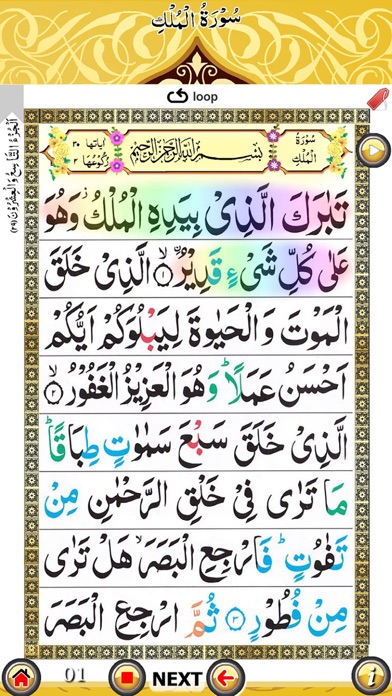 سُوْرَةُ الْمُلْكِ
loop
اَلْجُزْءُ التَّاسِعُ وَالْعِشْرُوْنَ (٢٩)
سُوْرَةُ الْمُلْكِ
بِسْمِ اللّٰهِ الرَّحْمٰنِ الرَّحِيْمِ
اٰيَاتُهَا ٣٠
رُكُوْعُهَا ٢
تَبٰرَكَ الَّذِىْ بِيَدِهِ الْمُلْكُ ز وَهُوَ
عَلٰى كُلِّ شَىْءٍ قَدِيْرُ ۨ ۙ ﴿١﴾ الَّذِىْ خَلَقَ
الْمَوْتَ وَ الْحَيٰوةَ لِيَبْلُوَكُمْ اَيُّكُمْ
اَحْسَنُ عَمَلًا ؕ وَ هُوَ الْعَزِيْزُ الْغَفُوْرُ ۙ ﴿٢﴾
الَّذِىْ خَلَقَ سَبْعَ سَمٰوٰتٍ طِبَاقًا ؕ
مَا تَرٰى فِىْ خَلْقِ الرَّحْمٰنِ مِنْ
تَفٰوُتٍ ؕ فَارْجِعِ الْبَصَرَ ۙ هَلْ تَرٰى
مِنْ فُطُوْرٍ ﴿٣﴾ ثُمَّ ارْجِعِ الْبَصَرَ
01 NEXT i